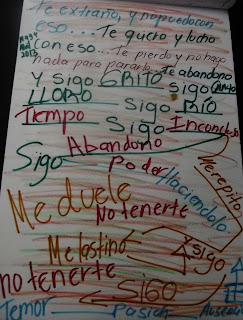 Te extraño, y no puedo con
eso... Te quiero y lucho
con eso... Te pierdo y no hago
nada para pararlo. Te abandono
Y sigo GRITO sigo
LLORO Sigo RIO
Tiempo Sigo Inconcluso
Abandono
Sigo Poder Haciéndolo
Me repito
Me duele
No tenerte
Me lastima Sigo
no tenerte
SIGO
Temor Pasión Ausencia